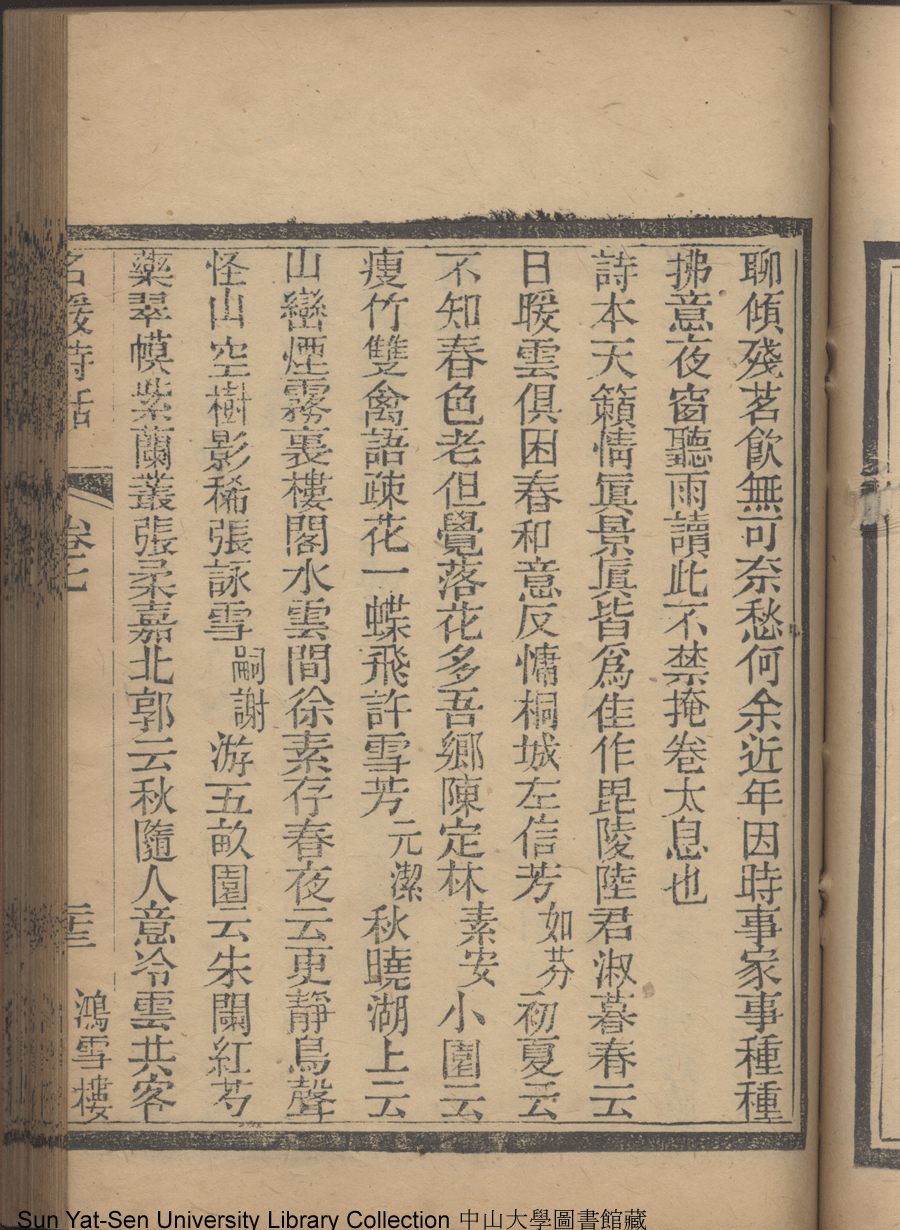 聊傾殘茗飲無可奈愁何余近年因時事家事種種
拂意夜窗聽雨讀此不禁掩卷太息也
詩本天籟情眞景眞皆爲佳作毘陵陸君淑暮春云
日暖雲俱困春和意反慵桐城左信芳如芬初夏云
不知春色老但覺落花多吾鄉陳定林素安小園云
瘦竹雙禽語疎花一蝶飛許雪芳元潔秋曉湖上云
山巒煙霧裏樓閣水雲間徐素仔春夜云更靜鳥聲
怪山空樹影稀張詠雪嗣謝游五畝園云朱闌紅芍
藥翠幙紫蘭叢張柔嘉北郭云秋隨人意冷雲共客
名媛詩話 卷七 二十三 鴻雪樓
Sun Yat-Sen University Library Collection 中山大學圖書館藏